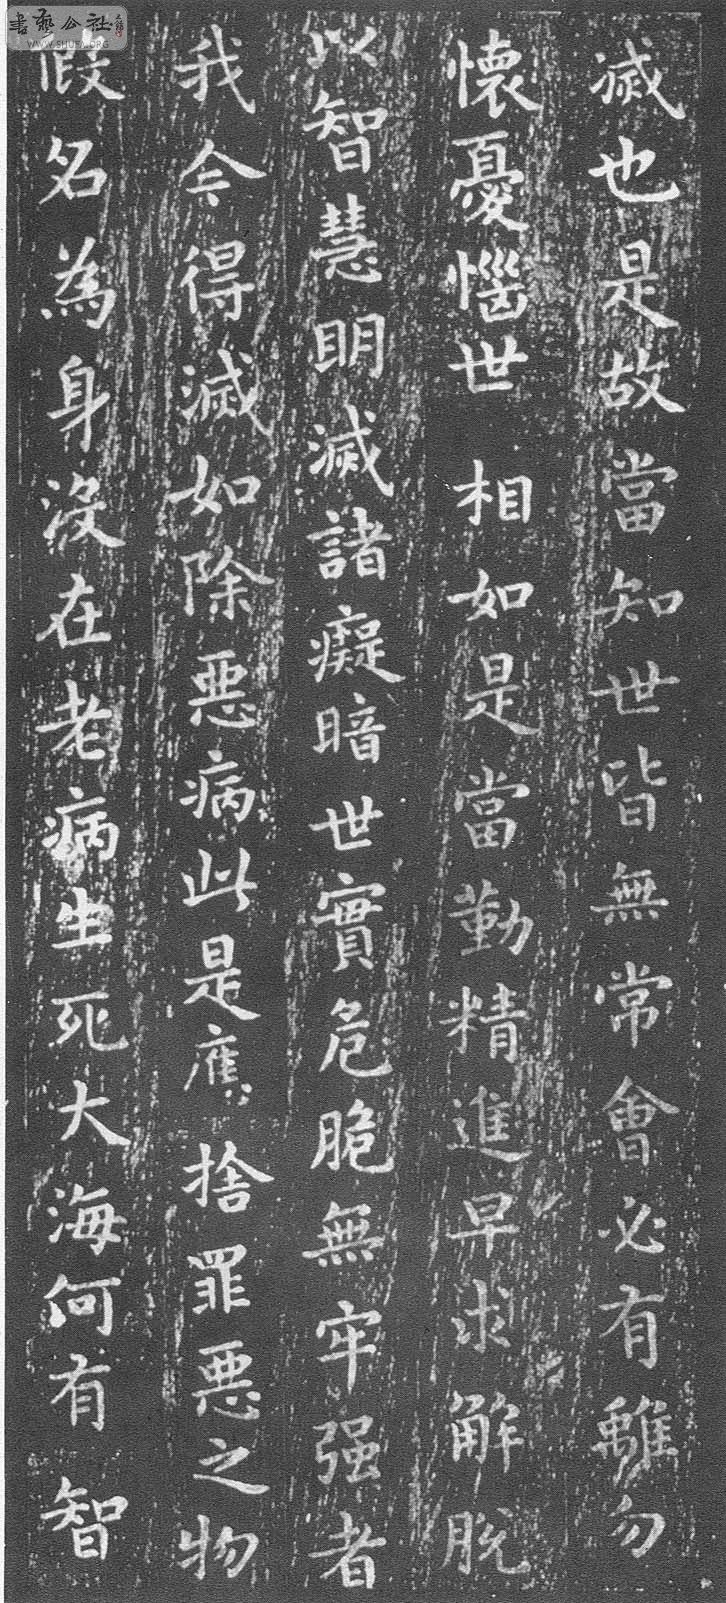 滅也是故當知世皆無常會必有離勿
懷憂惱世相如是當勤精進早求解脫
以智慧明滅諸癡暗世實危脆無牢强者
我今得滅如除悪病此是應捨罪悪之物
假名為身没在老病生死大海何有智
書藝公社
WWW.SHUFA.ORG